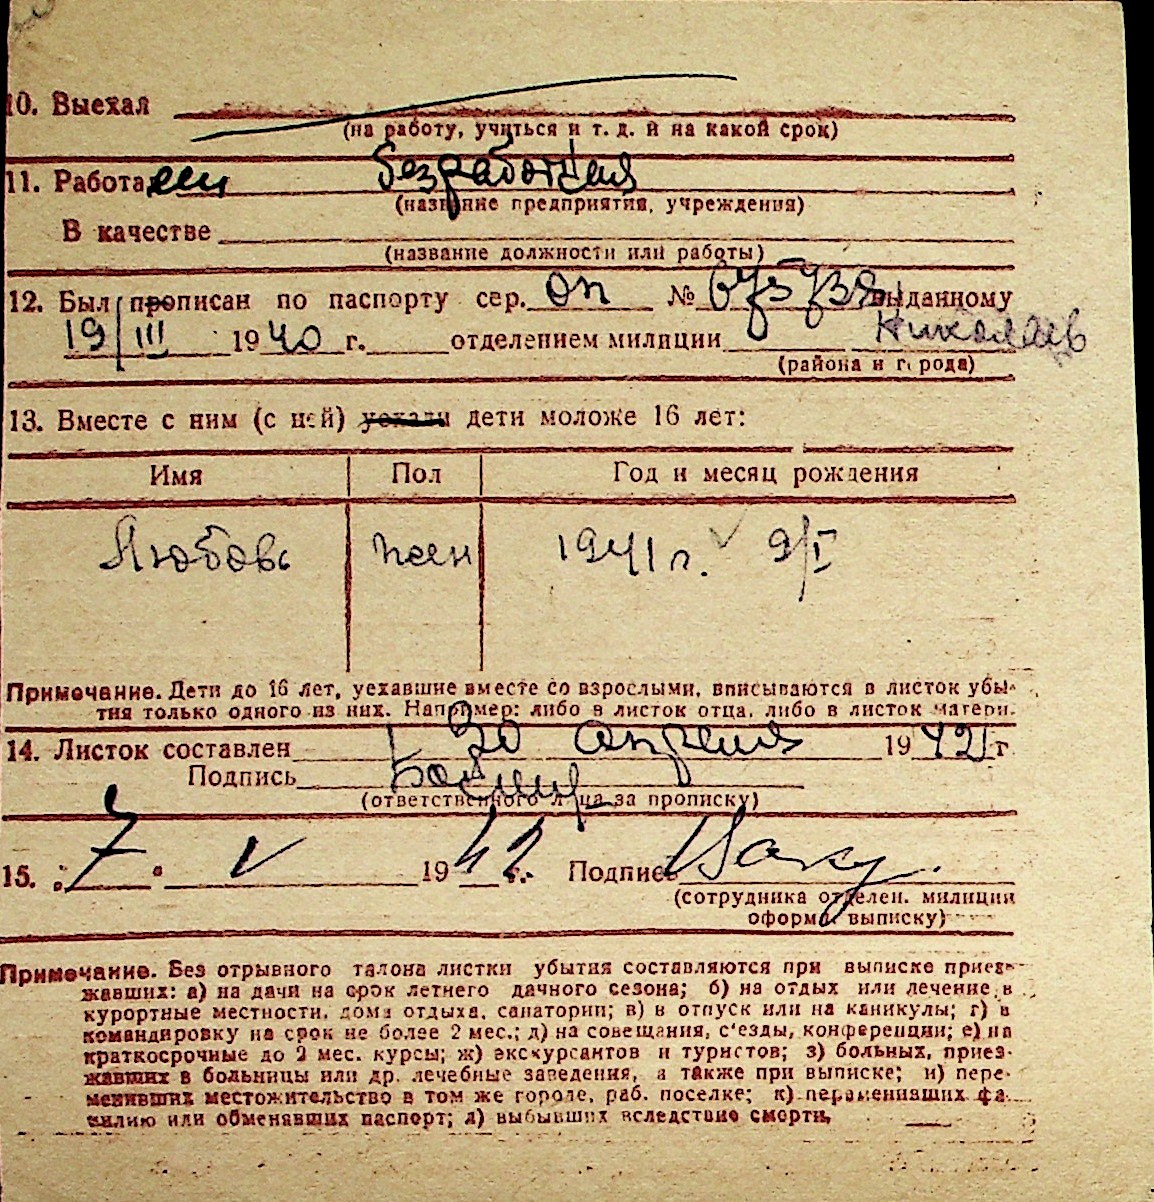 10. Выехал
(на работу, учиться и т. д. и на какой срок)
11. Работа безработная
(название предприятия, учреждения)
В качестве
(название должности или работы)
12. Был прописан по паспорту сер. ОП № выданному
19/III 1940 г. отделением милиции Николаев
(района и города)
13. Вместе с ним (с ней) уехали дети моложе 16 лет:
Имя Пол Год и месяц рождения
Любовь жен 1941 г. 9/I
Примечание. Дети до 16 лет, уехавшие вместе со взрослыми, вписываются в листок убы-
тия только одного из них. Например: либо в листок отца, либо в листок матери.
14. Листок составлен 30 апреля 1942 г
Подпись
(ответственного лица за прописку)
15. „7" V 1942 г. Подпись
(сотрудника отделен. милиции
оформ. выписку)
Примечание. Без отрывного талона листки убытия составляются при выписке приез-
жавших: а) на дачи на срок летнего дачного сезона; б) на отдых или лечение в
курортные местности, дома отдыха, санатории; в) в отпуск или на каникулы; г) в
командировку на срок не более 2 мес.; д) на совещания, с'езды, конференции; е) на
краткосрочные до 2 мес. курсы; ж) экскурсантов и туристов; з) больных, приез-
жавших в больницы или др. лечебные заведения, а также при выписке; и) пере-
менивших местожительство в том же городе, раб. поселке; к) переменивших фа-
милию или обменявших паспорт; л) выбывших вследствие смерти.